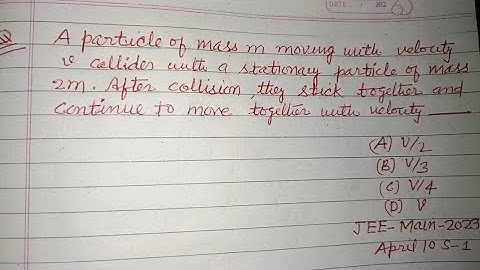 DATE: / 202
Q A particle of mass m moving with velocity
v collides with a stationary particle of mass
2m. After collision they stick together and
continue to move together with velocity ____
(A) V/2
(B) V/3
(C) V/4
(D) V
JEE-Main-2023
April 10 S-1